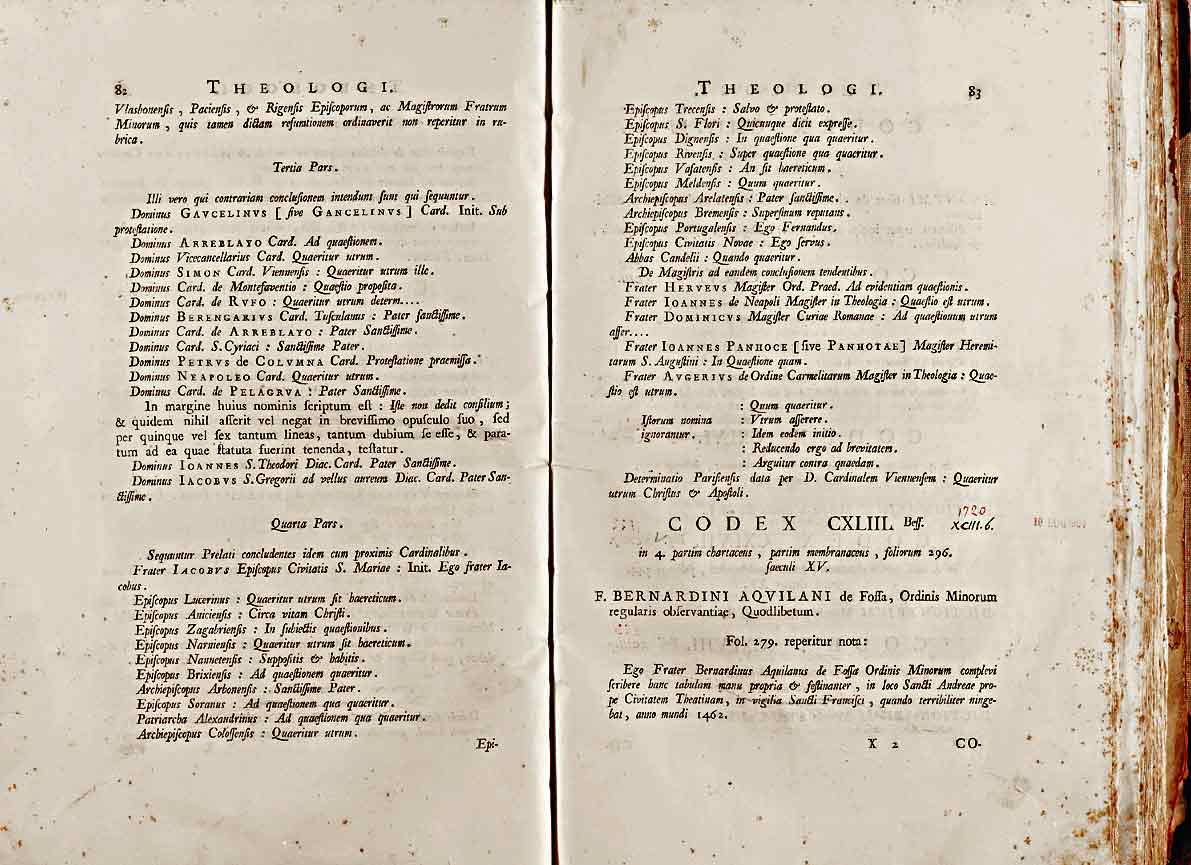 82 THEOLOGI.
Vlasbonenſis, Pacienſis, & Rigenſis Epiſcoporum, ac Magiſtrorum Fratrum
Minorum, quis tamen dictam reſumtionem ordinaverit non reperitur in ru-
brica.
Tertia Pars.
Illi vero qui contrariam concluſionem intendunt ſunt qui ſequuntur.
Dominus GAVCELINVS [ ſive GANCELINVS ] Card. Init. Sub
proteſtatione.
Dominus ARREBLAYO Card. Ad quaeſtionem.
Dominus Vicecancellarius Card. Quaeritur utrum.
Dominus SIMON Card. Viennenſis : Quaeritur utrum ille.
Dominus Card. de Montefaventio : Quaeſtio propoſita.
Dominus Card. de RVFO : Quaeritur utrum determ....
Dominus BERENGARIVS Card. Tuſculanus : Pater ſanctiſſime.
Dominus Card. de ARREBLAYO : Pater Sanctiſſime.
Dominus Card. S. Cyriaci : Sanctiſſime Pater.
Dominus PETRVS de COLVMNA Card. Proteſtatione praemiſſa.
Dominus NEAPOLEO Card. Quaeritur utrum.
Dominus Card. de PELAGRVA : Pater Sanctiſſime.
In margine huius nominis ſcriptum eſt : Iſte non dedit conſilium;
& quidem nihil aſſerit vel negat in breviſſimo opuſculo ſuo, ſed
per quinque vel ſex tantum lineas, tantum dubium ſe eſſe, & para-
tum ad ea quae ſtatuta fuerint tenenda, teſtatur.
Dominus IOANNES S. Theodori Diac. Card. Pater Sanctiſſime.
Dominus IACOBVS S. Gregorii ad vellus aureum Diac. Card. Pater San-
ctiſſime.
Quarta Pars.
Sequuntur Prelati concludentes idem cum proximis Cardinalibus.
Frater IACOBVS Epiſcopus Civitatis S. Mariae : Init. Ego frater Ia-
cobus.
Epiſcopus Lucerinus : Quaeritur utrum ſit haereticum.
Epiſcopus Anicienſis : Circa vitam Chriſti.
Epiſcopus Zagabrienſis : In ſubiectis quaeſtionibus.
Epiſcopus Narnienſis : Quaeritur utrum ſit haereticum.
Epiſcopus Nannetenſis : Suppoſitis & habitis.
Epiſcopus Brixienſis : Ad quaeſtionem quaeritur.
Archiepiſcopus Arbonenſis : Sanctiſſime Pater.
Epiſcopus Soranus : Ad quaeſtionem qua quaeritur.
Patriarcha Alexandrinus : Ad quaeſtionem qua quaeritur.
Archiepiſcopus Coloſſenſis : Quaeritur utrum.
Epi-
THEOLOGI. 83
Epiſcopus Trecenſis : Salvo & proteſtato.
Epiſcopus S. Flori : Quicunque dicit expreſſe.
Epiſcopus Dignenſis : In quaeſtione qua quaeritur.
Epiſcopus Rivenſis : Super quaeſtione qua quaeritur.
Epiſcopus Vaſatenſis : An ſit haereticum.
Epiſcopus Meldenſis : Quum quaeritur.
Archiepiſcopus Arelatenſis : Pater ſanctiſſime.
Archiepiſcopus Bremenſis : Superſinum reputans.
Epiſcopus Portugalenſis : Ego Fernandus.
Epiſcopus Civitatis Novae : Ego ſervus.
Abbas Candelii : Quando quaeritur.
De Magiſtris ad eandem concluſionem tendentibus.
Frater HERVEVS Magiſter Ord. Praed. Ad evidentiam quaeſtionis.
Frater IOANNES de Neapoli Magiſter in Theologia : Quaeſtio eſt utrum.
Frater DOMINICVS Magiſter Curiae Romanae : Ad quaeſtionum utrum
aſſer....
Frater IOANNES PANHOCE [ ſive PANHOTAE ] Magiſter Heremi-
tarum S. Auguſtini : In Quaeſtione quam.
Frater AVGERIVS de Ordine Carmelitarum Magiſter in Theologia : Quae-
ſtio eſt utrum.
: Quum quaeritur.
Iſtorum nomina : Vtrum aſſerere.
ignorantur. : Idem eodem initio.
: Reducendo ergo ad brevitatem.
: Arguitur contra quaedam.
Determinatio Pariſienſis data per D. Cardinalem Viennenſem : Quaeritur
utrum Chriſtus & Apoſtoli.
1720
CODEX CXLIII. Beſſ. XCIII. 6.
in 4. partim chartaceus, partim membranaceus, foliorum 296.
ſaeculi XV.
F. BERNARDINI AQVILANI de Foſſa, Ordinis Minorum
regularis obſervantiae, Quodlibetum.
Fol. 279. reperitur nota:
Ego Frater Bernardinus Aquilanus de Foſſa Ordinis Minorum complevi
ſcribere hanc tabulam manu propria & feſtinanter, in loco Sancti Andreae pro-
pe Civitatem Theatinam, in vigilia Sancti Franciſci, quando terribiliter ninge-
bat, anno mundi 1462.
X 2 CO-